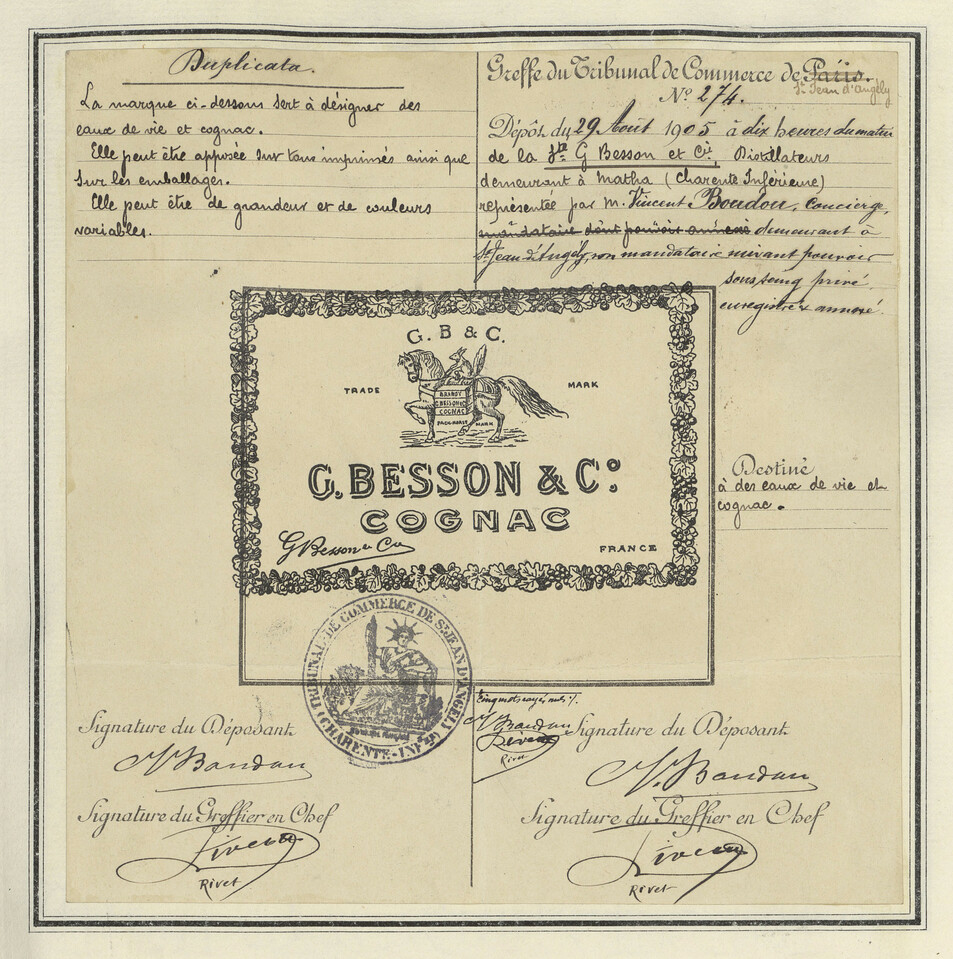 Duplicata.
La marque ci-dessous sert à désigner des
eaux de vie et cognac.
Elle peut être apposée sur tous imprimés ainsi que
sur les emballages.
Elle peut être de grandeur et de couleurs
variables.
Greffe du Tribunal de Commerce de Paris.
St Jean d'Angély
N° 274.
Dépôt du 29 Août 1905 à dix heures du matin
de la Sté G Besson et Cie, Distillateurs
demeurant à Matha (Charente Inférieure)
représentée par M. Vincent Boudou, concierge,
mandataire dont pouvoir annexé demeurant à
St Jean d'Angély, son mandataire suivant pouvoir
sous seing privé
enregistré & annexé.
G. B & C.
TRADE MARK
BRANDY
G. BESSON & Co
COGNAC
PACK-HORSE MARK
G. BESSON & Co.
COGNAC
G Besson & Cie
FRANCE
Destiné
à des eaux de vie et
cognac.
TRIBUNAL DE COMMERCE DE St JEAN D'ANGELY
(CHARENTE-INFre)
Cinq mots rayés nuls ./.
Rivet
Signature du Déposant
Signature du Déposant
Signature du Greffier en Chef
Signature du Greffier en Chef
Rivet
Rivet